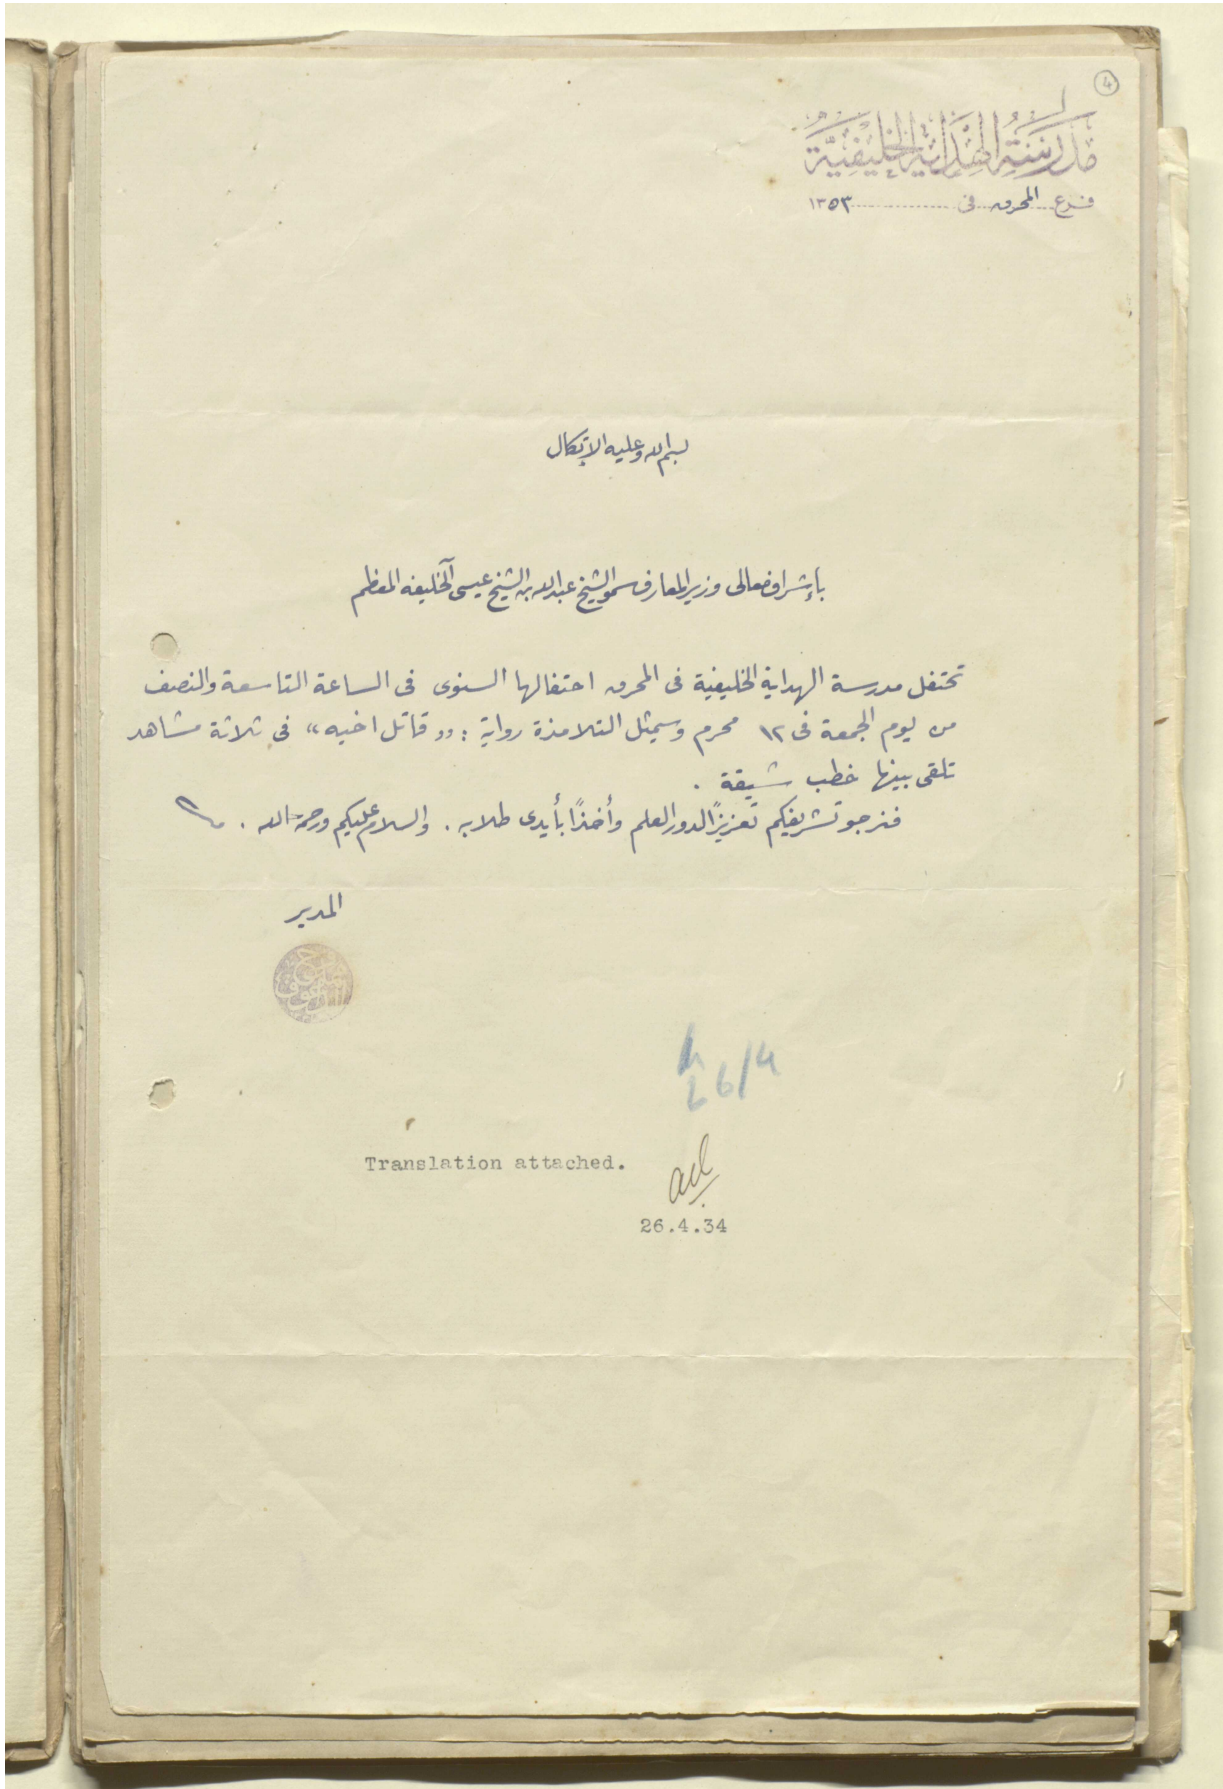 4
مدرسة الهداية الخليفية
فرع المحرق في ١٣٥٣
بسم الله وعليه الاتكال
بإشراف معالى وزير المعارف سمو الشيخ عبد الله بن الشيخ عيسى آل خليفه المعظم
تحتفل مدرسة الهداية الخليفية فى المحرق احتفالها السنوى فى الساعة التاسعة والنصف
من يوم الجمعة فى ١٢ محرم وسيمثل التلامذة رواية : «قاتل اخيه» فى ثلاثة مشاهد
تلقى بينها خطب شيقة .
فنرجو تشريفكم تعزيزًا لدور العلم وأخذًا بأيدى طلابه . والسلام عليكم ورحمة الله .
المدير
26/4
Translation attached.
26.4.34